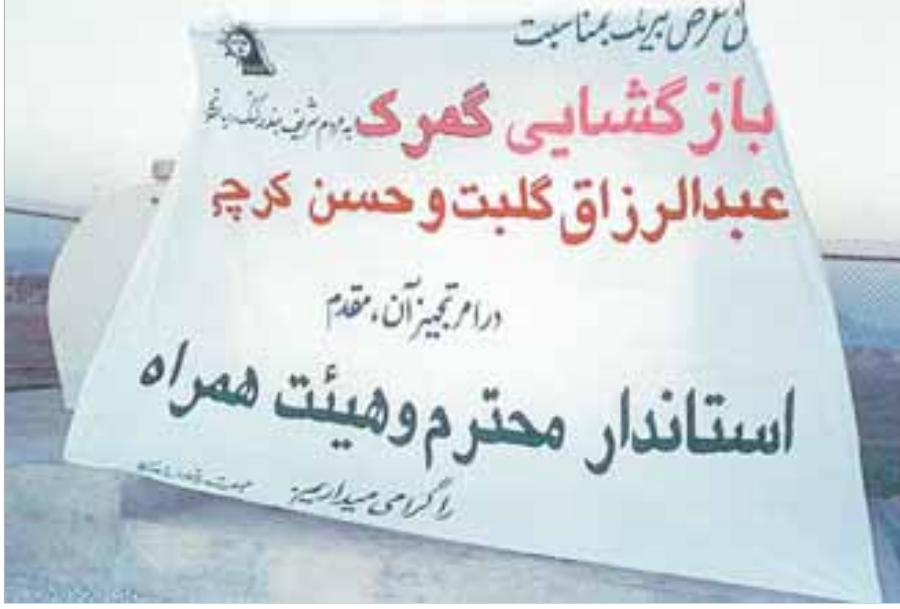 عرض تبریک بمناسبت
بازگشایی گمرک به مردم شریف بندر
عبدالرزاق گلبت و حسن کرچی
در امر تجهیز آن، مقدم
استاندار محترم و هیئت همراه
را گرامی میداریم.